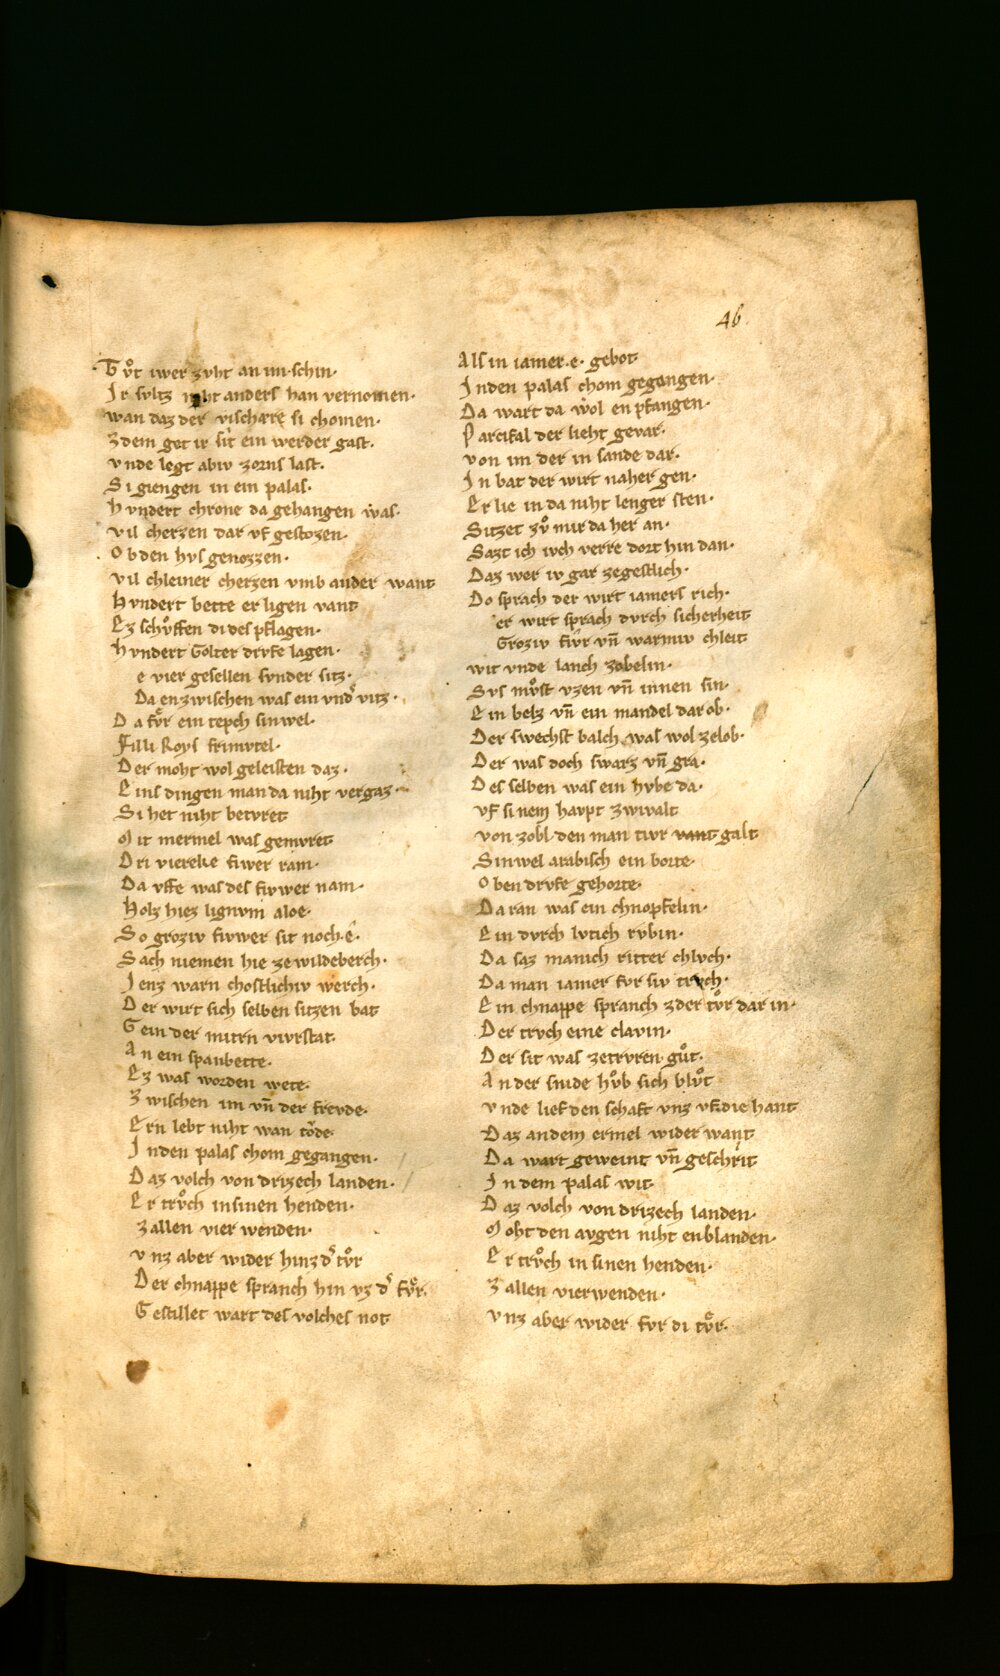 46.
Tvͦt iwer zvht an im schin·
Ir svltz niht anders han vernomen·
wan daz der vischære si chomen·
Zdem get ir sit ein werder gast·
vnde legt abiv zorns last·
Si giengen in ein palas·
hvndert chrone da gehangen was·
vil cherzen dar vf gestozen·
Ob den hvs genozzen·
vil chleiner cherzen vmb ander want
hvndert bette er ligen vant
Ez schvͦffen di des pflagen·
hvndert Golter drvfe lagen·
e vier gesellen svnder sitz·
Da enzwischen was ein vndˀ vitz·
Da fvͤr ein tepch sinwel·
Filli Roys frimvtel·
Der moht wol geleisten daz·
Eins dingen man da niht vergaz·
Si het niht betvret
Mit mermel was gemvret
Dri vierekie fiwer ram·
Da vffe was des fivwer nam·
holz hiez lignvm aloe·
So groziv fivwer sit noch e·
Sach niemen hie ze wildeberch·
Jenz warn chostlichiv werch·
Der wirt sich selben sitzen bat
Gein der mitrn vivrstat·
An ein spanbette·
Ez was worden wete·
Zwischen im vn̄ der frevde·
Ern lebt niht wan toͤde·
In den palas chom gegangen·
Daz volch von drizech landen·
Er trvͦch in sinen henden·
Zallen vier wenden·
vnz aber wider hinz dˀ tvͤr
Der chnappe spranch hin vz dˀ fvͤr·
Gestillet wart des volches not
Als in iamer·e· gebot
In den palas chom gegangen·
Da wart da wol enpfangen·
Parcifal der lieht gevar·
von im der in sande dar·
In bat der wirt naher gen·
Er lie in da niht lenger sten·
Sitzet zvͦ mir da her an·
Sazt ich ivch verre dort hin dan·
Daz wer iv gar zegestlich·
Do sprach der wirt iamers rich·
er wirt sprach dvrch sicherheit
Groziv fivr vn̄ warmiv chleit
wit vnde lanch zobelin·
Svs mvͦst vzen vn̄ innen sin·
Ein belz vn̄ ein mandel dar ob·
Der swechst balch was wol zelob·
Der was doch swarz vn̄ gra·
Des selben was ein hvbe da·
vf sinem havpt zwivalt
von zobl den man tivr vant galt
Sinwel arabisch ein borte·
Oben drvfe gehorte·
Dar an was ein chnopfelin·
Ein dvrch lvtich rvbin·
Da saz manich ritter chlvch·
Da man iamer fvr siv trvch·
Ein chnappe spranch zder tvͤr dar in·
Der trvch eine glavin·
Der sit was zetrvren gvͦt·
An der snide hvͦb sich blvͦt
vnde lief den schaft vnz vf die hant
Daz an dem ermel wider want
Da wart geweint vn̄ geschrit
In dem palas wit
Daz volch von drizech landen·
Moht den avgen niht enblanden·
Er trvͦch in sinen henden·
Zallen vier wenden·
vnz aber wider fvr di tvͤr·